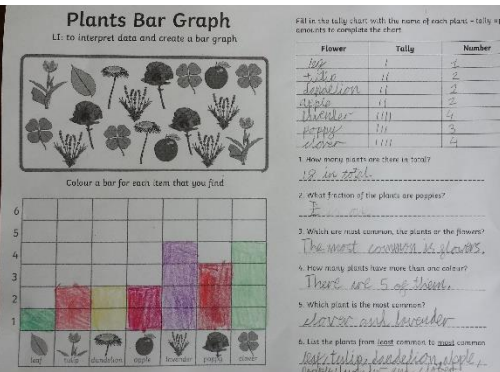 Plants Bar Graph
LI: to interpret data and create a bar graph
Colour a bar for each item that you find
6
5
4
3
2
1
leaf tulip dandelion apple lavender poppy clover
Fill in the tally chart with the name of each plant – tally
amounts to complete the chart.
Flower Tally Number
leaf
tulip 2
dandelion 2
apple 2
lavender 4
poppy 3
clover 4
1. How many plants are there in total?
18 in total
2. What fraction of the plants are poppies?
3. Which are most common, the plants or the flowers?
The most common is flowers.
4. How many plants have more than one colour?
There are 5 of them.
5. Which plant is the most common?
clover and lavender
6. List the plants from least common to most common
leaf, tulip, dandelion, apple,